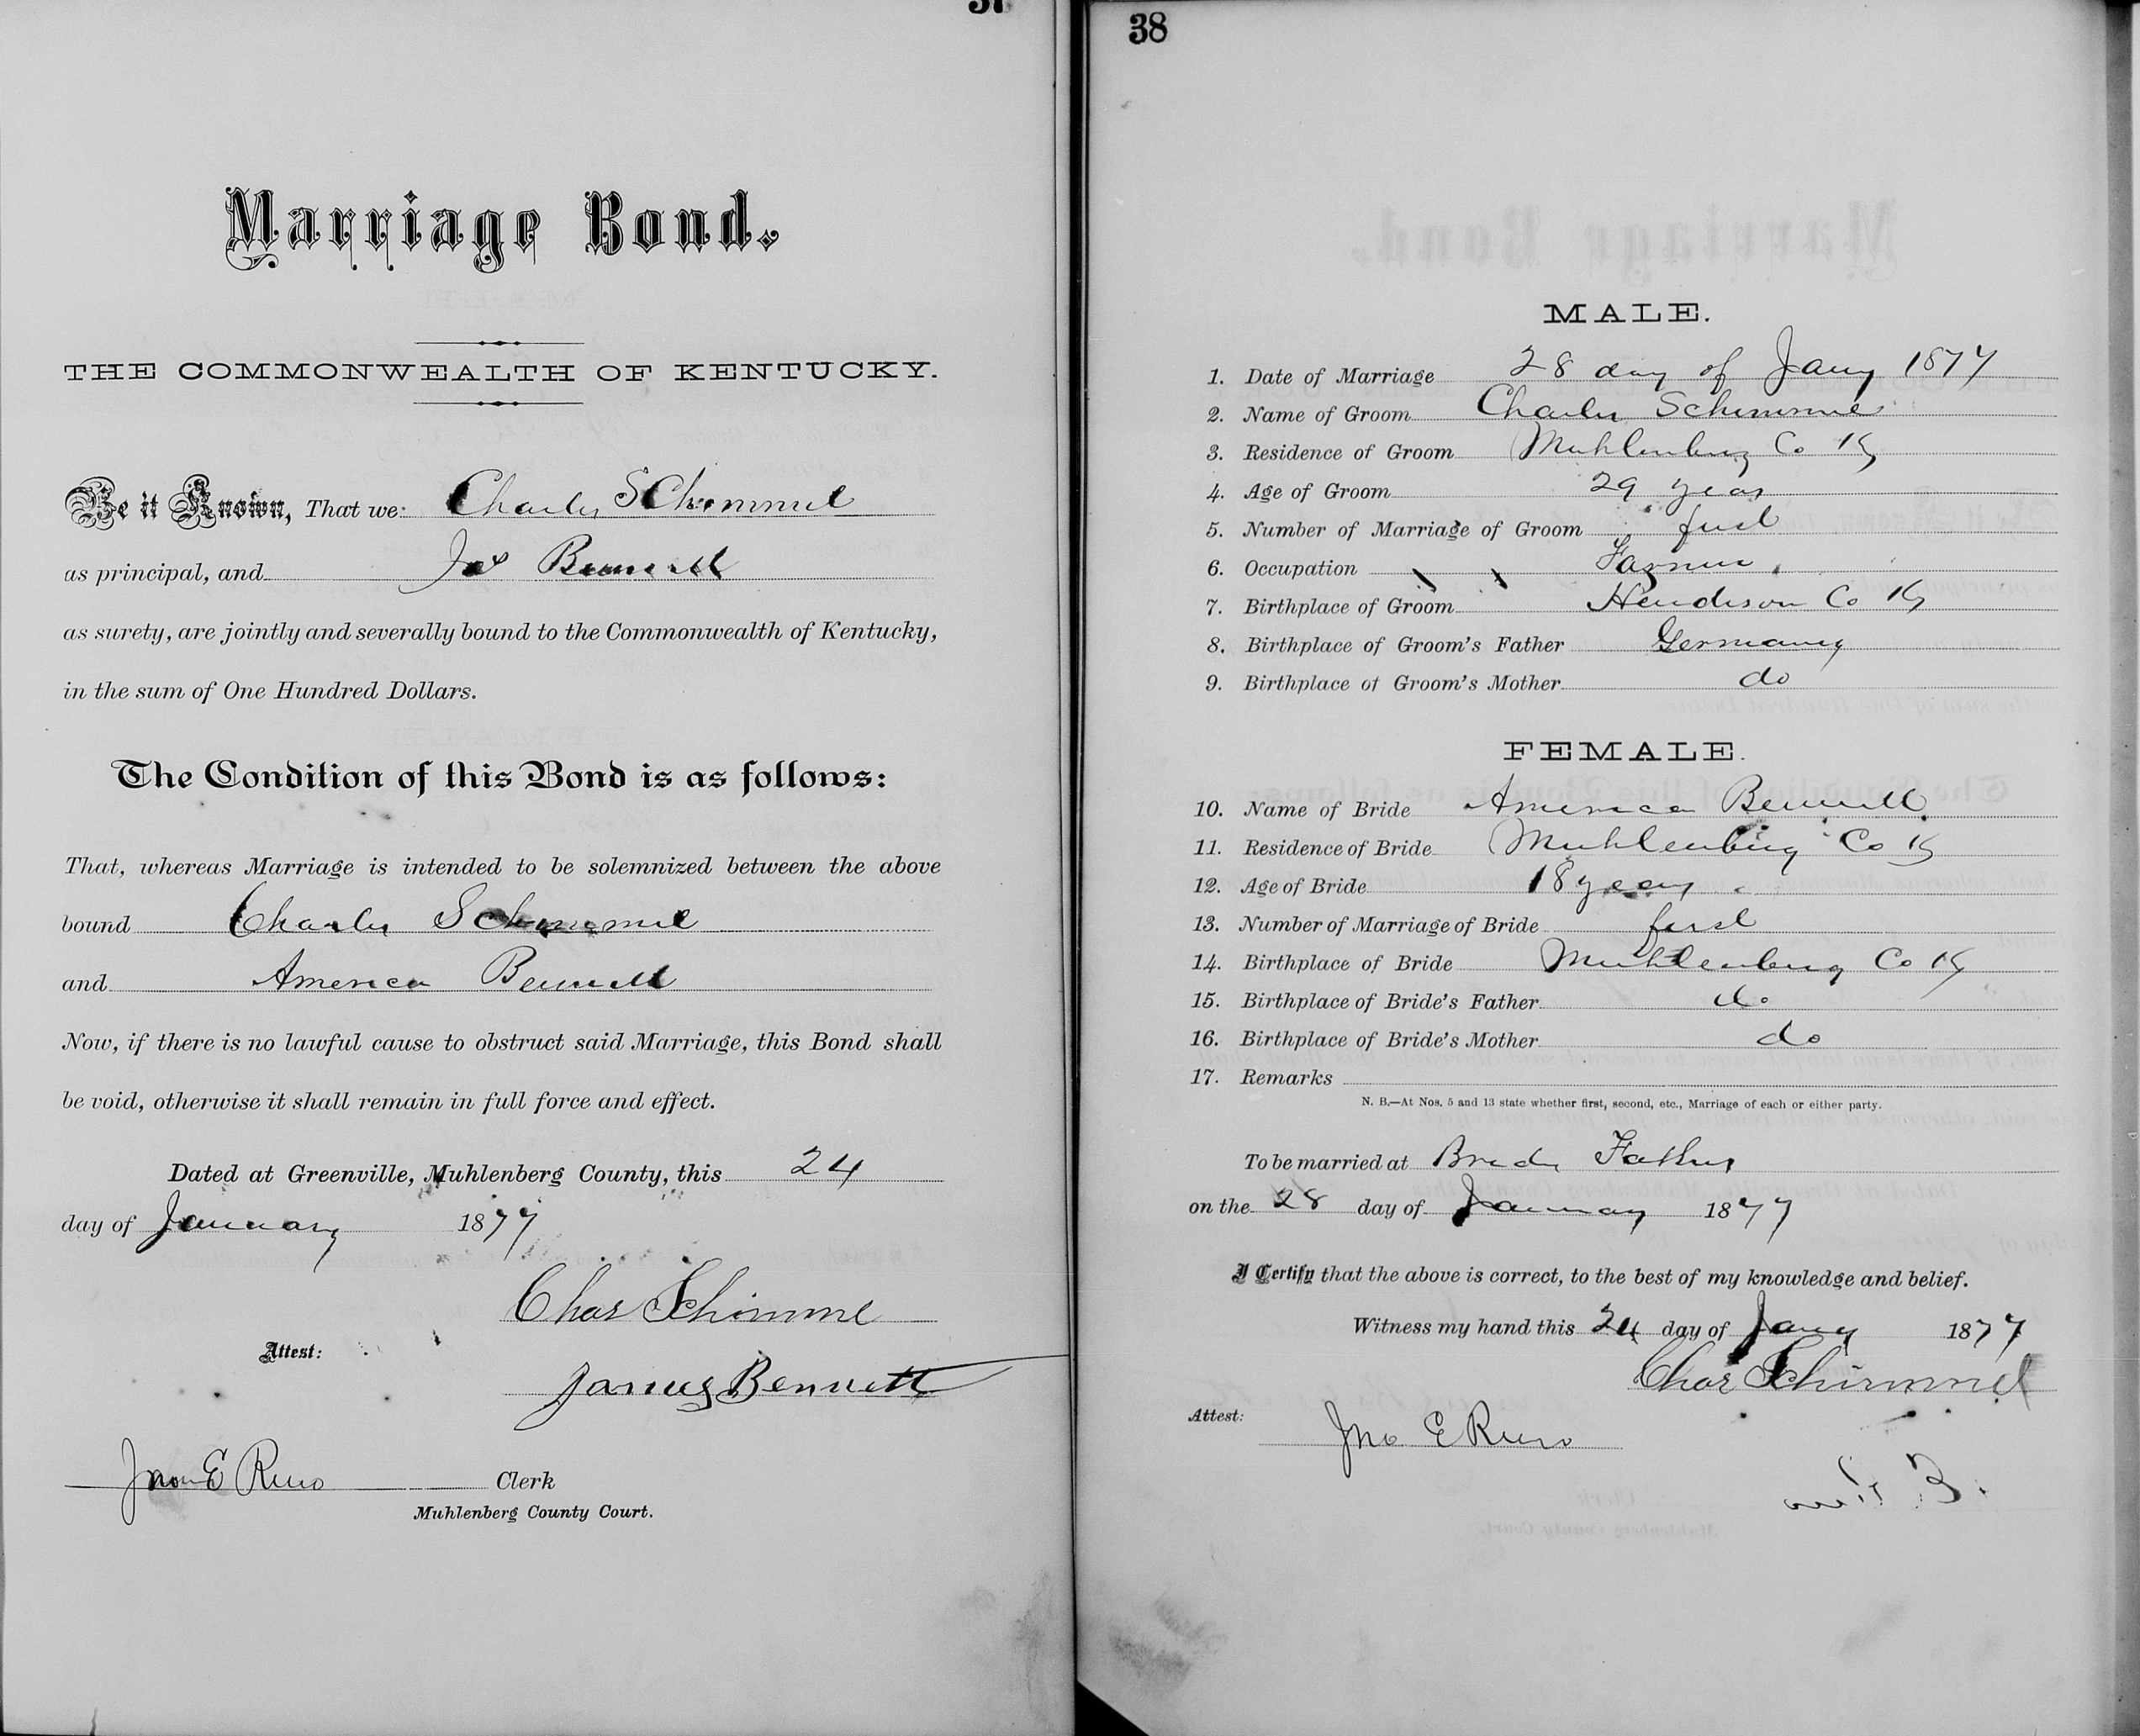 37
Marriage Bond.
THE COMMONWEALTH OF KENTUCKY.
Be it Known, That we Charles Schimmel
as principal, and Jas Bennett
as surety, are jointly and severally bound to the Commonwealth of Kentucky,
in the sum of One Hundred Dollars.
The Condition of this Bond is as follows:
That, whereas Marriage is intended to be solemnized between the above
bound Charles Schimmel
and America Bennett
Now, if there is no lawful cause to obstruct said Marriage, this Bond shall
be void, otherwise it shall remain in full force and effect.
Dated at Greenville, Muhlenberg County, this 24
day of January 1877
Chas Schimmel
Attest:
James Bennett
Jno E Reno Clerk
Muhlenberg County Court.
38
MALE.
1. Date of Marriage 28 day of Jany 1877
2. Name of Groom Charles Schimmel
3. Residence of Groom Muhlenberg Co Ky
4. Age of Groom 29 years
5. Number of Marriage of Groom first
6. Occupation Farmer
7. Birthplace of Groom Henderson Co Ky
8. Birthplace of Groom's Father Germany
9. Birthplace of Groom's Mother do
FEMALE.
10. Name of Bride America Bennett
11. Residence of Bride Muhlenberg Co Ky
12. Age of Bride 18 years
13. Number of Marriage of Bride first
14. Birthplace of Bride Muhlenberg Co Ky
15. Birthplace of Bride's Father do
16. Birthplace of Bride's Mother do
17. Remarks
N. B.—At Nos. 5 and 13 state whether first, second, etc., Marriage of each or either party.
To be married at Brides Fathers
on the 28 day of January 1877
I Certify that the above is correct, to the best of my knowledge and belief.
Witness my hand this 24 day of Jany 1877
Chas Schimmel
Attest:
Jno E Reno